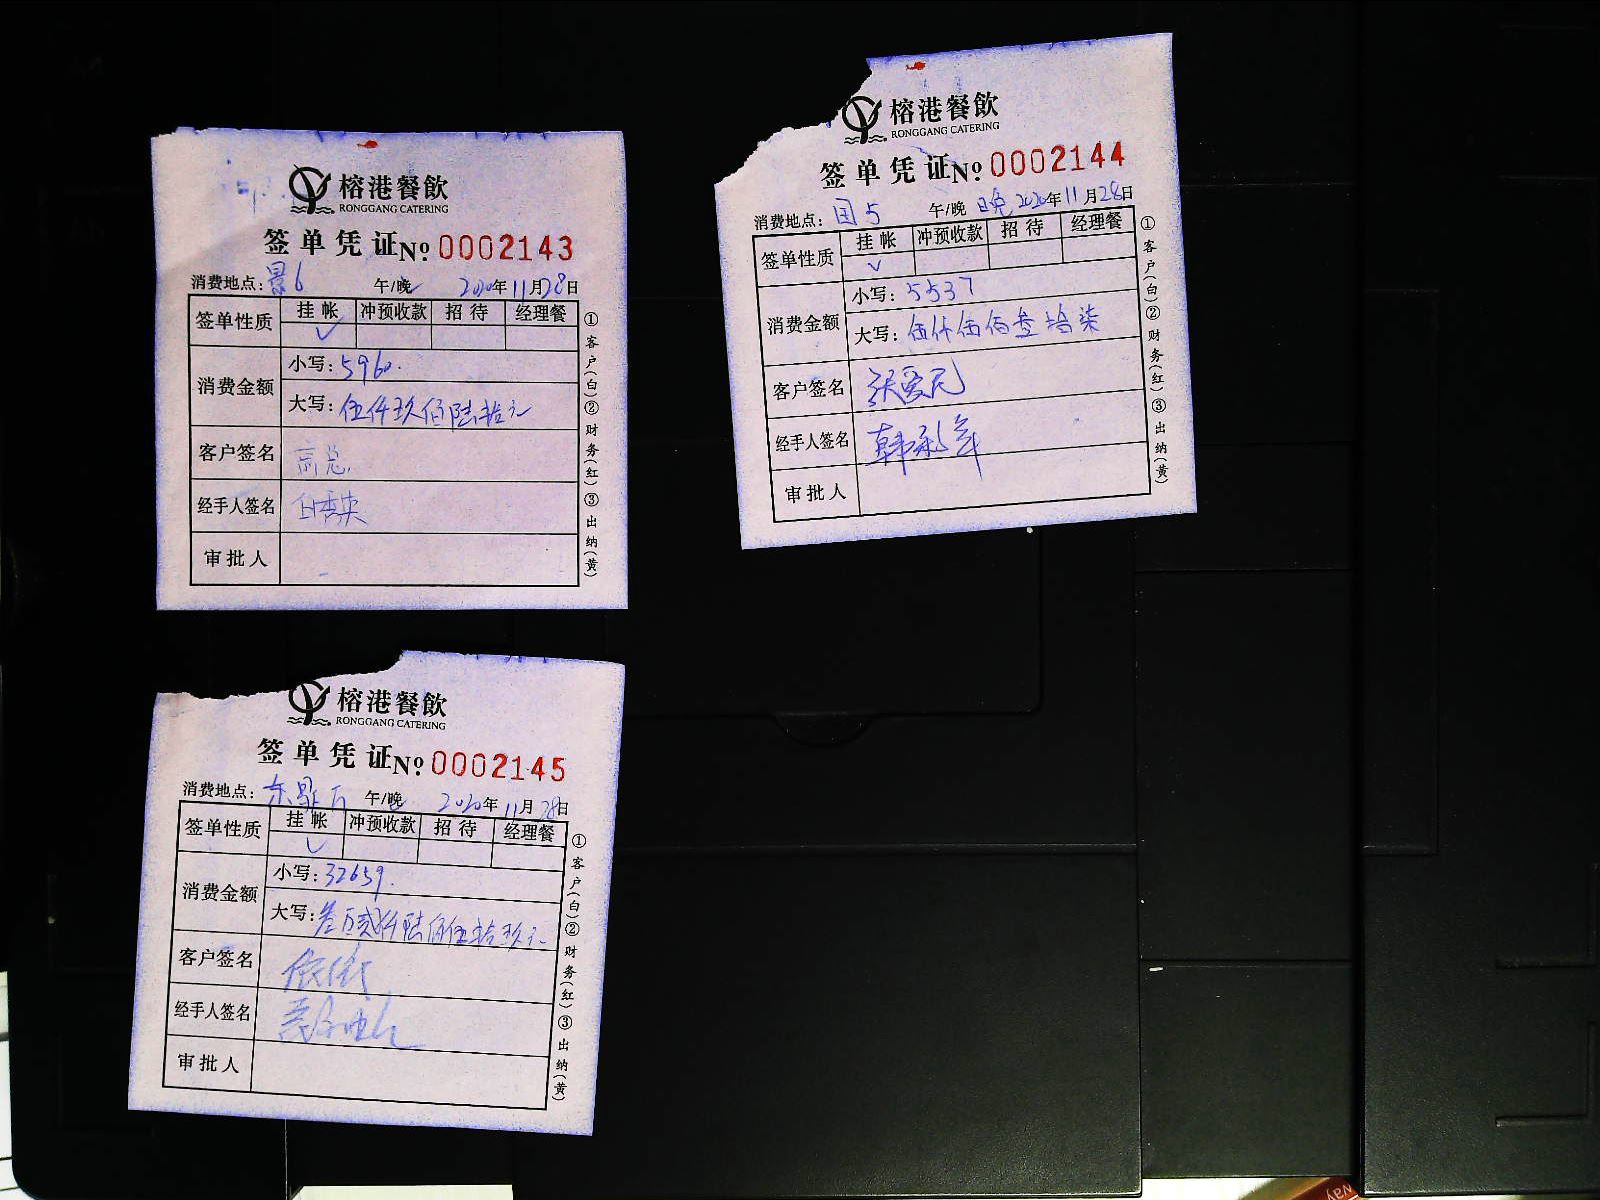 榕港餐飲
RONGGANG CATERING
签单凭证№ 0002143
消费地点: 景6 午/晚 2020年11月28日
签单性质 挂帐 冲预收款 招待 经理餐
✓
消费金额 小写: 5960.
大写: 伍仟玖佰陆拾元
客户签名 高总
经手人签名
审批人
①客户(白)②财务(红)③出纳(黄)
榕港餐飲
RONGGANG CATERING
签单凭证№ 0002144
消费地点: 国5 午/晚 晚 2020年11月28日
签单性质 挂帐 冲预收款 招待 经理餐
✓
消费金额 小写: 5537
大写: 伍仟伍佰叁拾柒
客户签名 张爱民
经手人签名
审批人
①客户(白)②财务(红)③出纳(黄)
榕港餐飲
RONGGANG CATERING
签单凭证№ 0002145
消费地点: 午/晚 2020年11月28日
签单性质 挂帐 冲预收款 招待 经理餐
✓
消费金额 小写: 32659.
大写: 叁万贰仟陆佰伍拾玖元
客户签名
经手人签名
审批人
①客户(白)②财务(红)③出纳(黄)
way